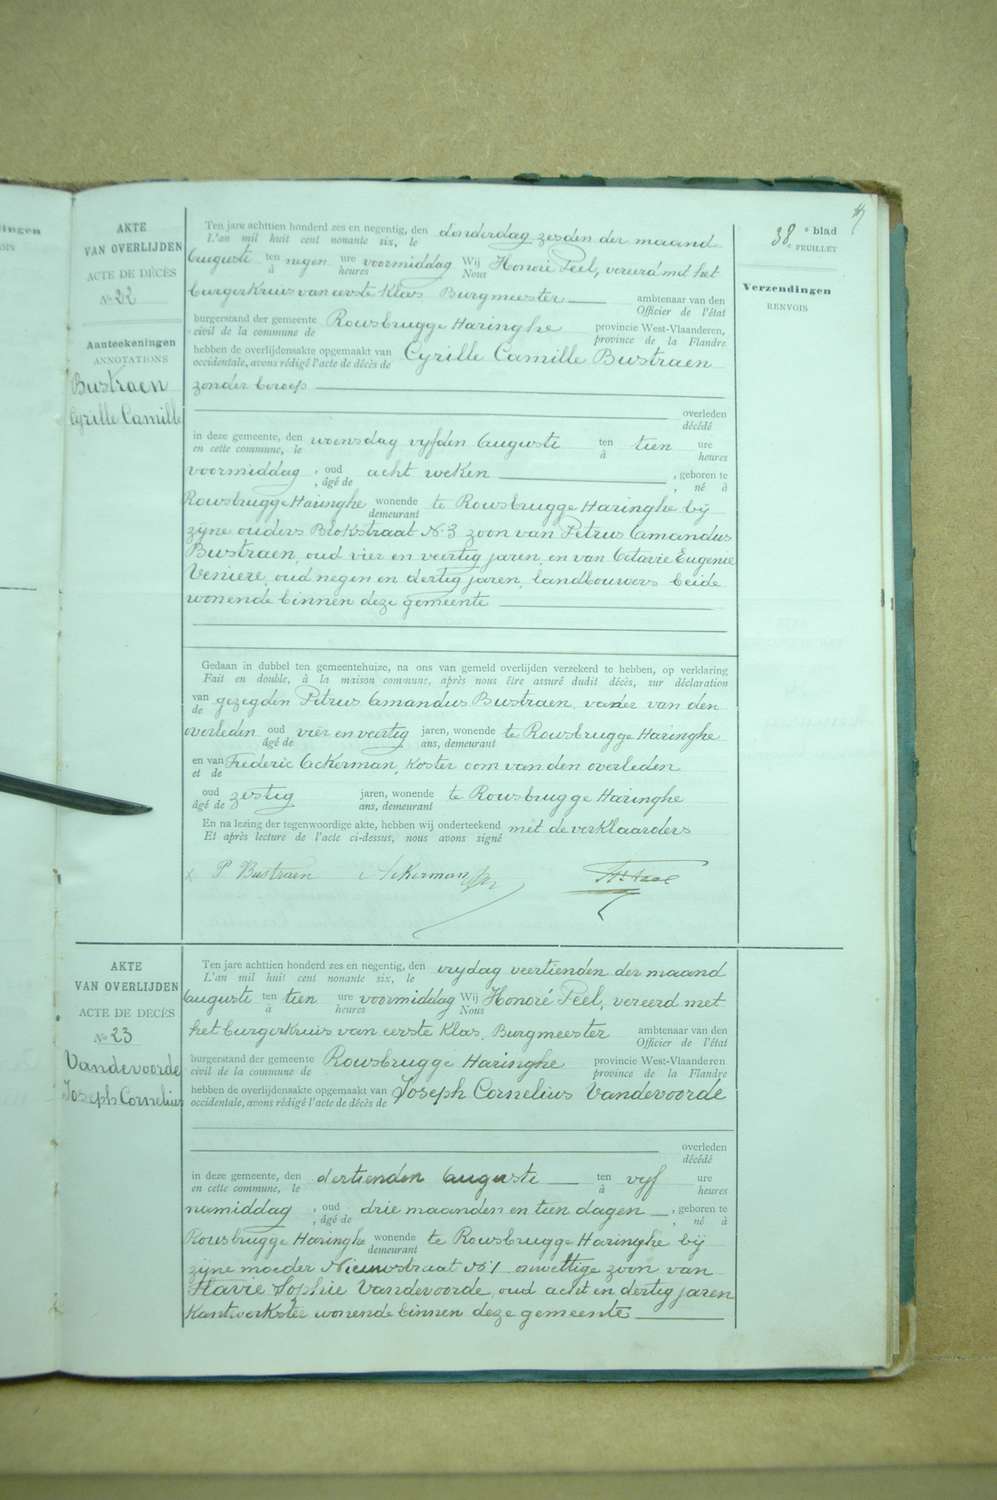 38e blad
FEUILLET
Verzendingen
RENVOIS
AKTE
VAN OVERLIJDEN
ACTE DE DÉCÈS
No 22
Aanteekeningen
ANNOTATIONS
Bustraen
Cyrille Camille
Ten jare achttien honderd zes en negentig, den donderdag zesden der maand
L'an mil huit cent nonante six, le
Auguste ten negen ure voormiddag Wij Honoré Peel, vereerd met het
à heures Nous
burgerkruis van eerste klas Burgmeester ambtenaar van den
Officier de l'état
burgerstand der gemeente Rousbrugge Haringhe provincie West-Vlaanderen,
civil de la commune de province de la Flandre
hebben de overlijdensakte opgemaakt van Cyrille Camille Bustraen
occidentale, avons rédigé l'acte de décès de
zonder beroep
overleden
décédé
in deze gemeente, den woensdag vyfden Auguste ten tien ure
en cette commune, le à heures
voormiddag , oud acht weken , geboren te
, âgé de , né à
Rousbrugge Haringhe wonende te Rousbrugge Haringhe bij
demeurant
zyne ouders Blokstraat N. 3 zoon van Petrus Amandus
Bustraen, oud vier en veertig jaren, en van Octavie Eugenie
Veniere, oud negen en dertig jaren, landbouwers beide
wonende binnen deze gemeente
Gedaan in dubbel ten gemeentehuize, na ons van gemeld overlijden verzekerd te hebben, op verklaring
Fait en double, à la maison commune, après nous être assuré dudit décès, sur déclaration
van gezegden Petrus Amandus Bustraen, vader van den
de
overleden oud vier en veertig jaren, wonende te Rousbrugge Haringhe
âgé de ans, demeurant
en van Frederic Ackerman, koster oom van den overleden
et de
oud zestig jaren, wonende te Rousbrugge Haringhe
âgé de ans, demeurant
En na lezing der tegenwoordige akte, hebben wij onderteekend met de verklaarders
Et après lecture de l'acte ci-dessus, nous avons signé
P Bustraen Ackerman H. Peel
AKTE
VAN OVERLIJDEN
ACTE DE DECÈS
No 23
Vandevoorde
Joseph Cornelius
Ten jare achttien honderd zes en negentig, den vrydag veertienden der maand
L'an mil huit cent nonante six, le
Auguste ten tien ure voormiddag Wij Honoré Peel, vereerd met
à heures Nous
het burgerkruis van eerste klas, Burgmeester ambtenaar van den
Officier de l'état
burgerstand der gemeente Rousbrugge Haringhe provincie West-Vlaanderen
civil de la commune de province de la Flandre
hebben de overlijdensakte opgemaakt van Joseph Cornelius Vandevoorde
occidentale, avons rédigé l'acte de décès de
overleden
décédé
in deze gemeente, den dertienden Auguste ten vyf ure
en cette commune, le à heures
namiddag , oud drie maanden en tien dagen , geboren te
, âgé de , né à
Rousbrugge Haringhe wonende te Rousbrugge Haringhe bij
demeurant
zyne moeder Nieuwstraat No 1 onwettige zoon van
Flavie Sophie Vandevoorde, oud acht en dertig jaren
Kantwerkster wonende binnen deze gemeente